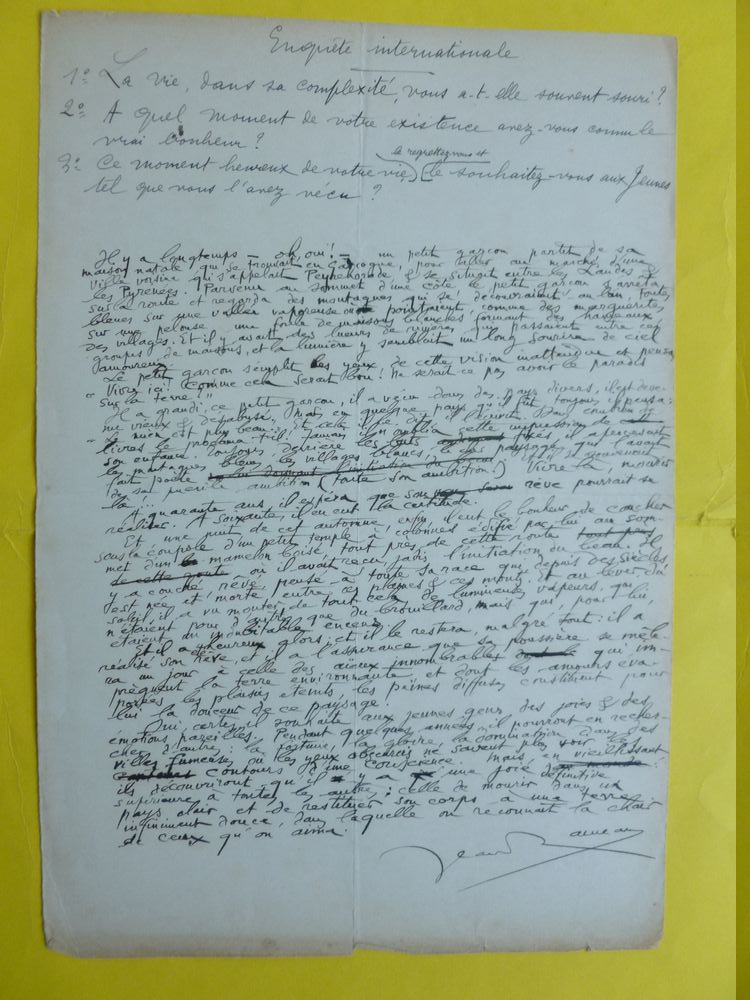 Enquête internationale
1º La vie, dans sa complexité, vous a-t-elle souvent souri ?
2º A quel moment de votre existence avez-vous connu le
vrai bonheur ?
le regrettez-vous et
3º Ce moment heureux de votre vie, le souhaitez-vous aux Jeunes
tel que vous l'avez vécu ?
Il y a longtemps — oh, oui ! — un petit garçon partit de sa
maison natale qui se trouvait en Gascogne, pour aller au marché d'une
ville voisine qui s'appelait Peyrehorade, & se situait entre les Landes &
les Pyrénées. Parvenu au sommet d'une côte le petit garçon s'arrêta
sur la route et regarda des montagnes qui se découvraient au loin, toutes
bleues sur une vallée vaporeuse où pointaient, comme des marguerites
sur une pelouse, une foule de maisons blanches formant des hameaux
des villages. Et il y avait des lueurs de rivières qui passaient entre ces
groupes de maisons, et la lumière y semblait un long sourire de ciel
amoureux.
Le petit garçon emplit ses yeux de cette vision inattendue et pensa
" Vivre ici ! Comme cela serait bon ! Ne serait-ce pas avoir le paradis
sur la terre ! "
Il a grandi, ce petit garçon, il a vécu dans des pays divers, il est deve-
nu vieux & désabusé, mais en quelque pays qu'il fût toujours il pensa :
" Le mien est plus beau. " Et cela
livres le
son enfance. Toujours, derrière les
les montagnes bleues, les villages blancs, le clair paysage qui l'avait
fait poète
de sa puérile ambition (toute son ambition !) Vivre là, mourir
là !...
A quarante ans il espéra que son rêve pourrait se
réaliser. A soixante, il en eut la certitude.
Et, une nuit de cet automne, enfin, il eut le bonheur de coucher
sous la coupole d'un petit temple à colonnes édifié par lui au som-
met d'un mamelon boisé, tout près de cette route
où il avait reçu jadis l'initiation du beau. Il
y a couché, rêvé, pensé à toute sa race qui depuis des siècles
est née et morte entre ces plaines & ces monts. Et au lever du
soleil, il a vu monter de tout cela de lumineuses vapeurs, qui
n'étaient pour d'autres que du brouillard, mais qui, pour lui,
étaient du indubitable encens.
Et il a été heureux alors, et il le restera, malgré tout : il a
réalisé son rêve, et il a l'assurance que sa poussière se mêle-
ra un jour à celle des aïeux innombrables qui im-
prègnent la terre environnante et dont les amours éva-
porées, les plaisirs éteints, les peines diffuses constituent pour
lui la douceur de ce paysage.
Oui, certes, il souhaite aux jeunes gens des joies & des
émotions pareilles. Pendant quelques années, ils pourront en recher-
cher d'autres : la fortune, la gloire, la domination dans des
villes fumeuses où les yeux obscurcis ne savent plus voir les
contours d'une conscience. Mais, en vieillissant
ils découvriront qu'il y a une joie définitive
supérieure à toutes les autres : celle de mourir dans un
pays clair et de restituer son corps à une terre
infiniment douce, dans laquelle on reconnaît la chair
de ceux qu'on aima.
Jean Rameau